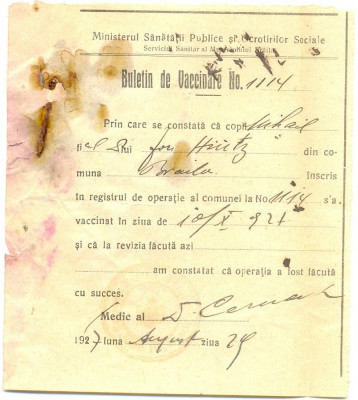 Ministerul Sănătății Publice și Ocrotirilor Sociale
Serviciul Sanitar al
Buletin de Vaccinare No. 1114
Prin care se constată că copil Mihail
fi al lui Ion din co-
muna Braila inscris
in registrul de operație al comunei la No. 1114 s'a
vaccinat în ziua de 10/X 927
și că la revizia făcută azi
am constatat că operația a fost făcută
cu succes.
Medic al D.
1927 luna August ziua 29